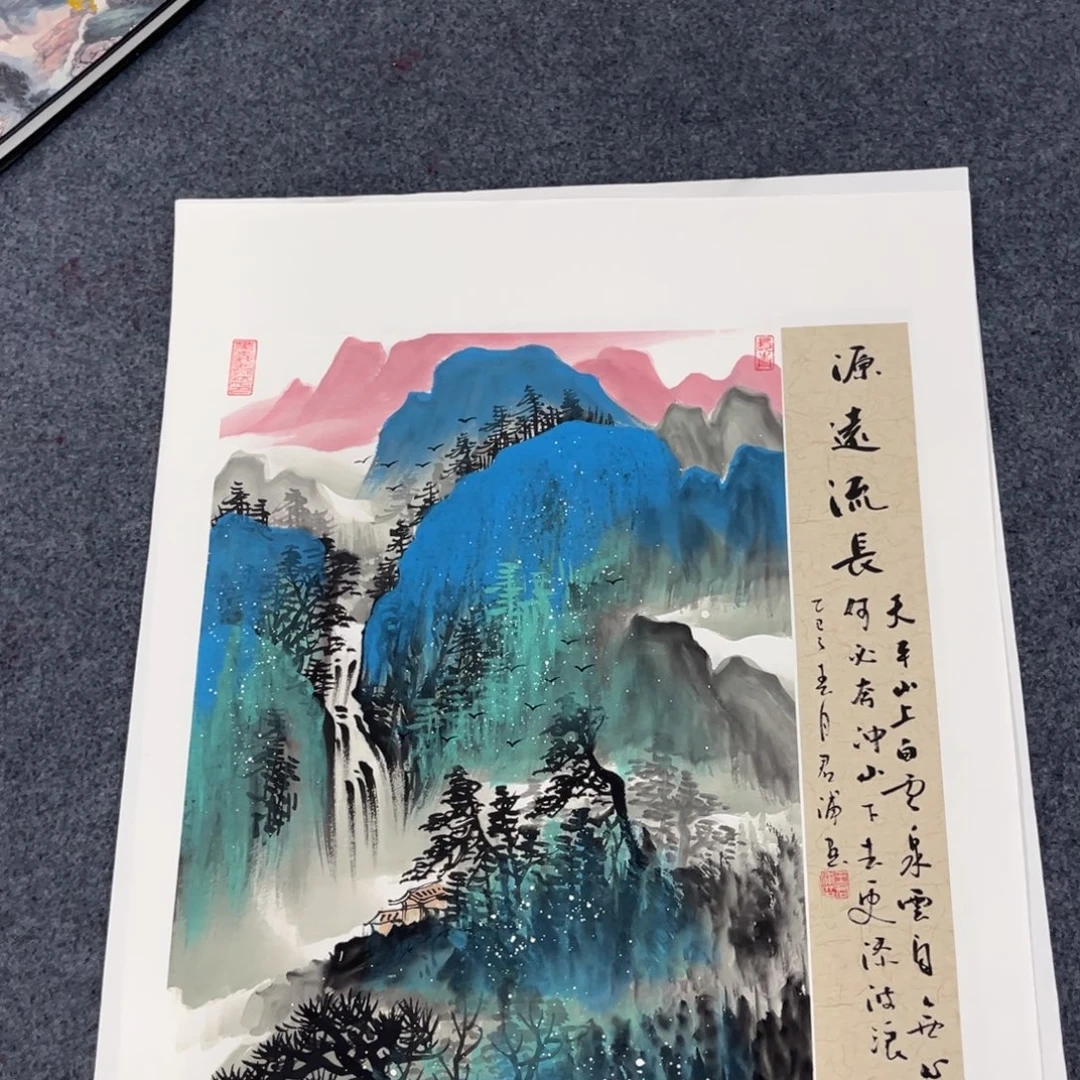 源遠流長
天平山上白云泉雲自无心
何必奔冲山下去更添波浪
乙巳年春月君浦画